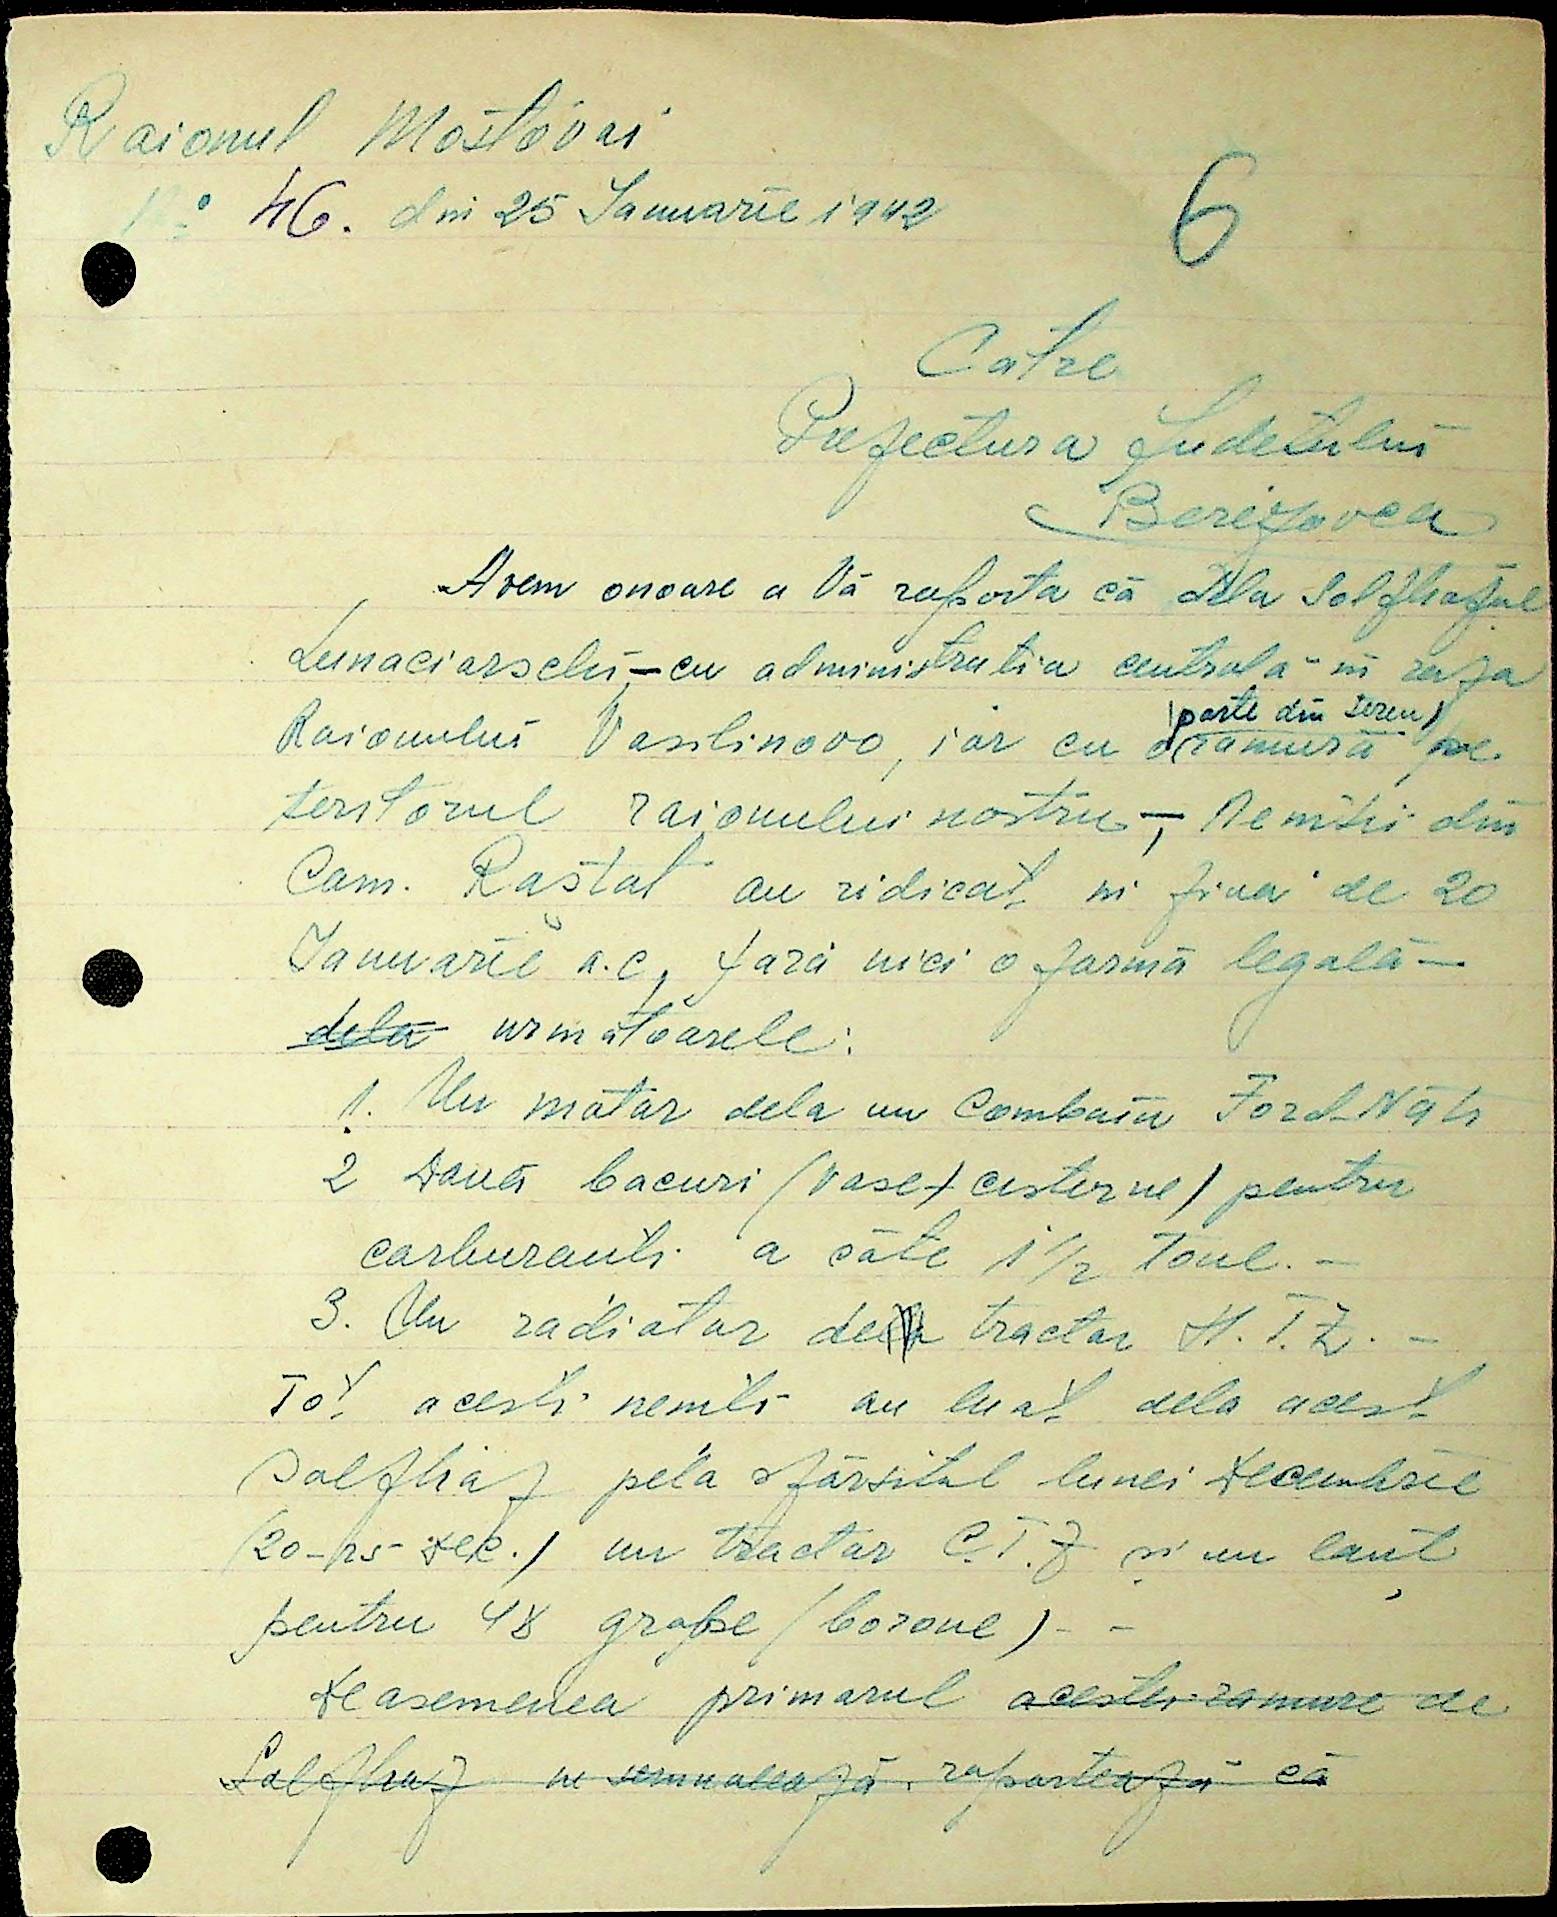 Raionul Mostovoi
No 46. din 25 Ianuarie 1942
6
Către
Prefectura Judetului
Berezovca
Avem onoare a Vă raporta că dela Solfhozul
Lunaciarschi – cu administratia centrală in raza
Raionului Vasilinovo, iar cu o ramură pe
(parte din teren)
teritorul raionului nostru –, Nemtii din
Com. Rastat au ridicat in ziua de 20
Ianuarie a.c, fără nici o formă legală –
dela următoarele:
1. Un motor dela un Combain Ford-Nati
2 Două bacuri (vase + cisterne) pentru
carburanti a câte 1 1/2 tone. –
3. Un radiator dela tractor H.T.Z. –
Tot acesti nemti au luat dela acest
Solfhoz pela sfârsitul lunei Decembrie
(20-25 Dec.) un tractor C.T.Z si un lanț
pentru 48 grape (borone) - –
Deasemenea primarul acestei ramure de
Solfhoz ne semnalează, raportează că